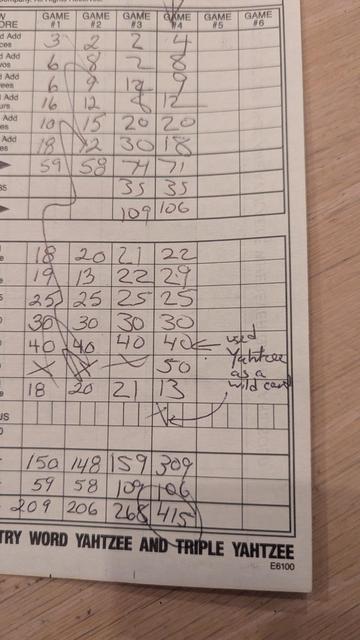 GAME #1 GAME #2 GAME #3 GAME #4 GAME #5 GAME #6
Add 3 2 2 4
Add 6 8 2 8
Add 6 9 12 9
Add 16 12 8 12
Add 10 15 20 20
Add 18 12 30 18
59 58 71
35 35
109 106
18 20 21 22
19 13 22 29
25 25 25 25
30 30 30 30
40 40 40 40 ← used
X X — 50 Yahtzee
as a
18 20 21 13 wild card
X
150 148 159 309
59 58 109 106
209 206 268 415
TRY WORD YAHTZEE AND TRIPLE YAHTZEE
E6100